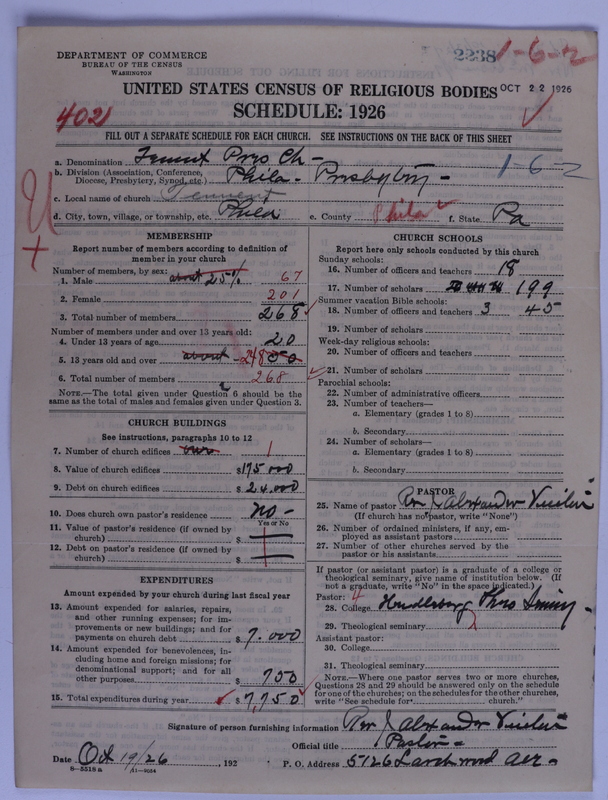 2238 1-6-2
DEPARTMENT OF COMMERCE
BUREAU OF THE CENSUS
WASHINGTON
UNITED STATES CENSUS OF RELIGIOUS BODIES OCT 22 1926
SCHEDULE: 1926
4021
FILL OUT A SEPARATE SCHEDULE FOR EACH CHURCH. SEE INSTRUCTIONS ON THE BACK OF THIS SHEET
a. Denomination Tennent Pres Ch -
b. Division (Association, Conference, Diocese, Presbytery, Synod, etc.) Phila - Presbytery - 1-6-2
c. Local name of church Tennent
d. City, town, village, or township, etc. Phila e. County Phila f. State Pa
MEMBERSHIP
Report number of members according to definition of
member in your church
Number of members, by sex:
1. Male about 25% 67
2. Female 201
3. Total number of members 268
Number of members under and over 13 years old:
4. Under 13 years of age 20
5. 13 years old and over about 248
6. Total number of members 268
NOTE.—The total given under Question 6 should be
same as the total of males and females given under Question 3.
CHURCH BUILDINGS
See instructions, paragraphs 10 to 12
7. Number of church edifices one 1
8. Value of church edifices $175.000
9. Debt on church edifices $24.000
10. Does church own pastor's residence? no -
Yes or No
11. Value of pastor's residence (if owned by
church) $
12. Debt on pastor's residence (if owned by
church) $
EXPENDITURES
Amount expended by your church during last fiscal year
13. Amount expended for salaries, repairs,
and other running expenses; for im-
provements or new buildings; and for
payments on church debt $7.000
14. Amount expended for benevolences, in-
cluding home and foreign missions; for
denominational support; and for all
other purposes $750
15. Total expenditures during year $7,750
CHURCH SCHOOLS
Report here only schools conducted by this church
Sunday schools:
16. Number of officers and teachers 18
17. Number of scholars 199
Summer vacation Bible schools:
18. Number of officers and teachers 3 45
19. Number of scholars
Week-day religious schools:
20. Number of officers and teachers
21. Number of scholars
Parochial schools:
22. Number of administrative officers
23. Number of teachers—
a. Elementary (grades 1 to 8)
b. Secondary
24. Number of scholars—
a. Elementary (grades 1 to 8)
b. Secondary
PASTOR
25. Name of pastor Rev J Alexander
(If church has no pastor, write "None")
26. Number of ordained ministers, if any, em-
ployed as assistant pastors
27. Number of other churches served by the
pastor or his assistants
If pastor (or assistant pastor) is a graduate of a college or
theological seminary, give name of institution below. (If
not a graduate, write "No" in the space indicated.)
Pastor:
28. College
29. Theological seminary
Assistant pastor:
30. College
31. Theological seminary
NOTE.—Where one pastor serves two or more churches,
Questions 28 and 29 should be answered only on the schedule
for one of the churches; on the schedules for the other churches,
write "See schedule for church."
Signature of person furnishing information Rev J Alexander
Official title Pastor -
Date Oct 19/26, 192 P. O. Address 5126 Larchwood Ave -
8—5518a